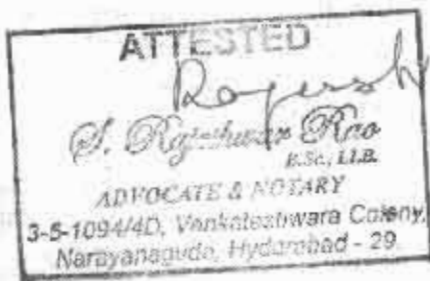 ATTESTED
S. Rajeshwar Rao
B.Sc., LL.B.
ADVOCATE & NOTARY
3-5-1094/4D, Venkateshwara Colony,
Narayanaguda, Hyderabad - 29